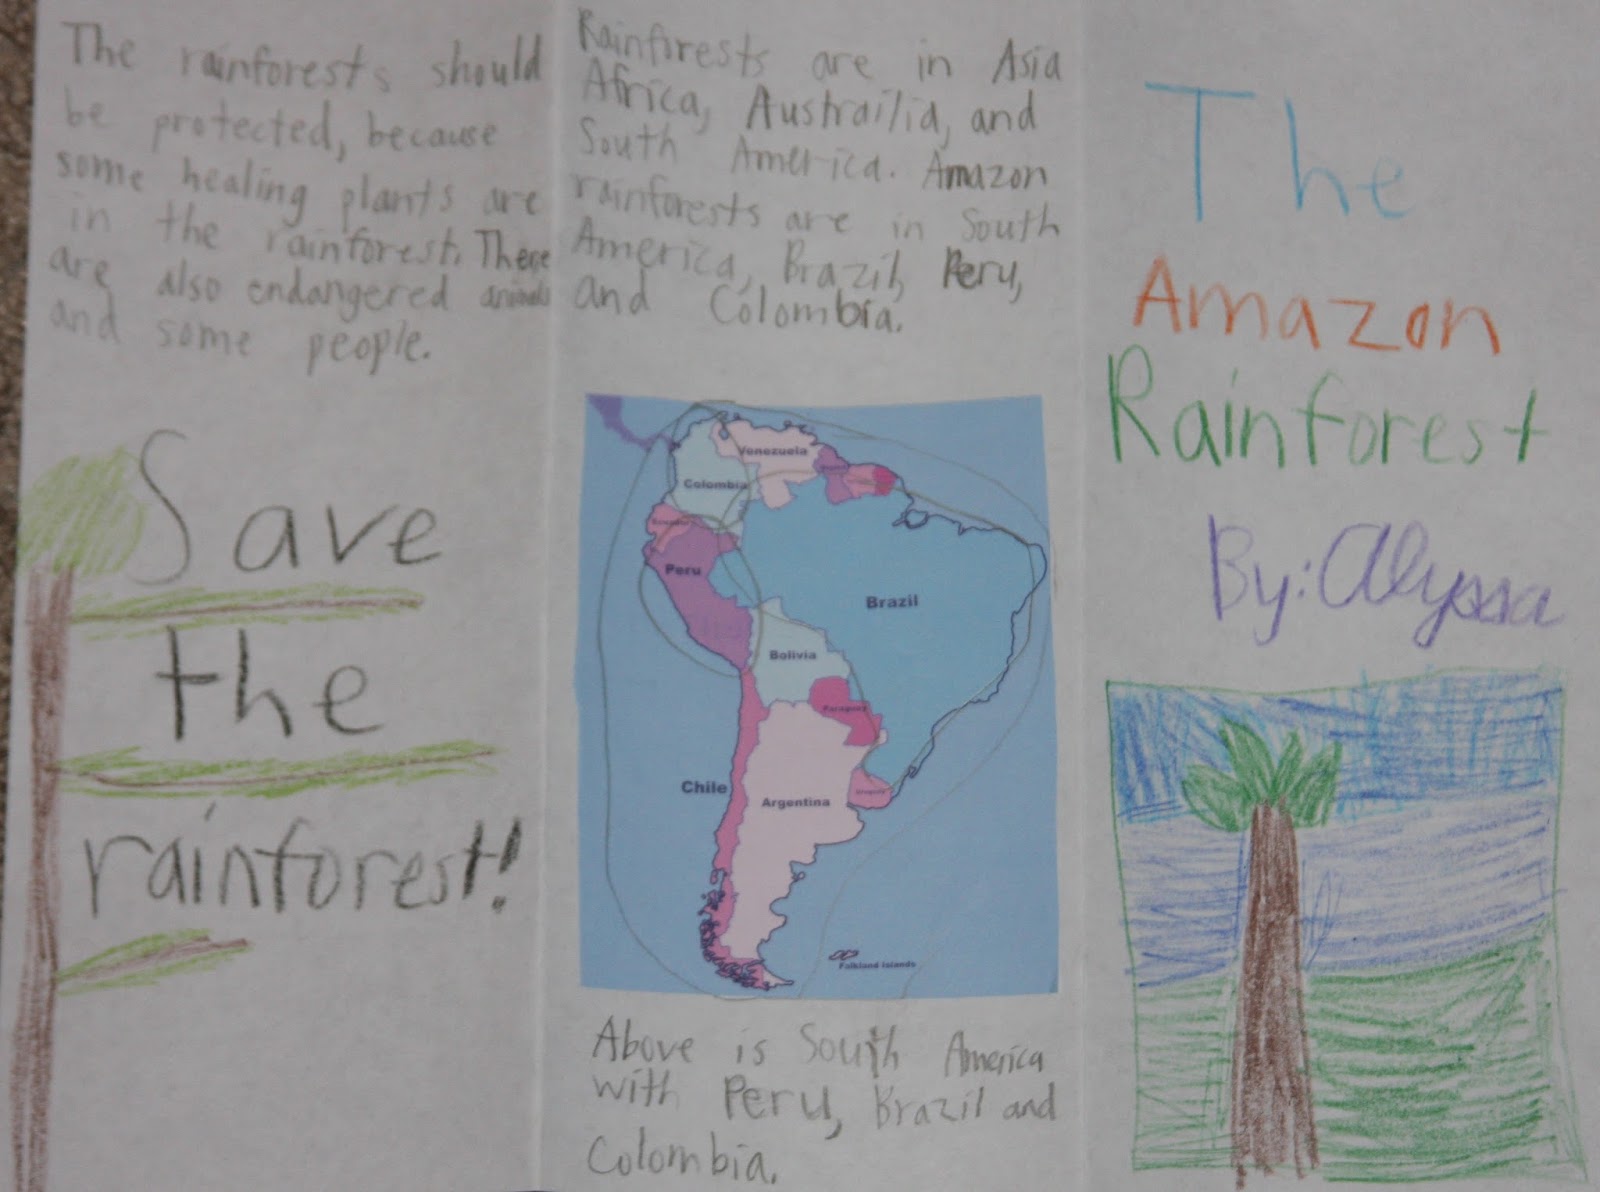 The rainforests should
be protected, because
some healing plants are
in the rainforest. There
are also endangered animals
and some people.
Save
the
rainforest!
Rainfirests are in Asia
Africa, Austrailia, and
South America. Amazon
rainforests are in South
America, Brazil, Peru,
and Colombia.
Venezuela
Colombia
Peru
Brazil
Bolivia
Paraguay
Chile
Argentina
Uruguay
Falkland Islands
Above is South America
with Peru, Brazil and
Colombia.
The
Amazon
Rainforest
By: Alyssa